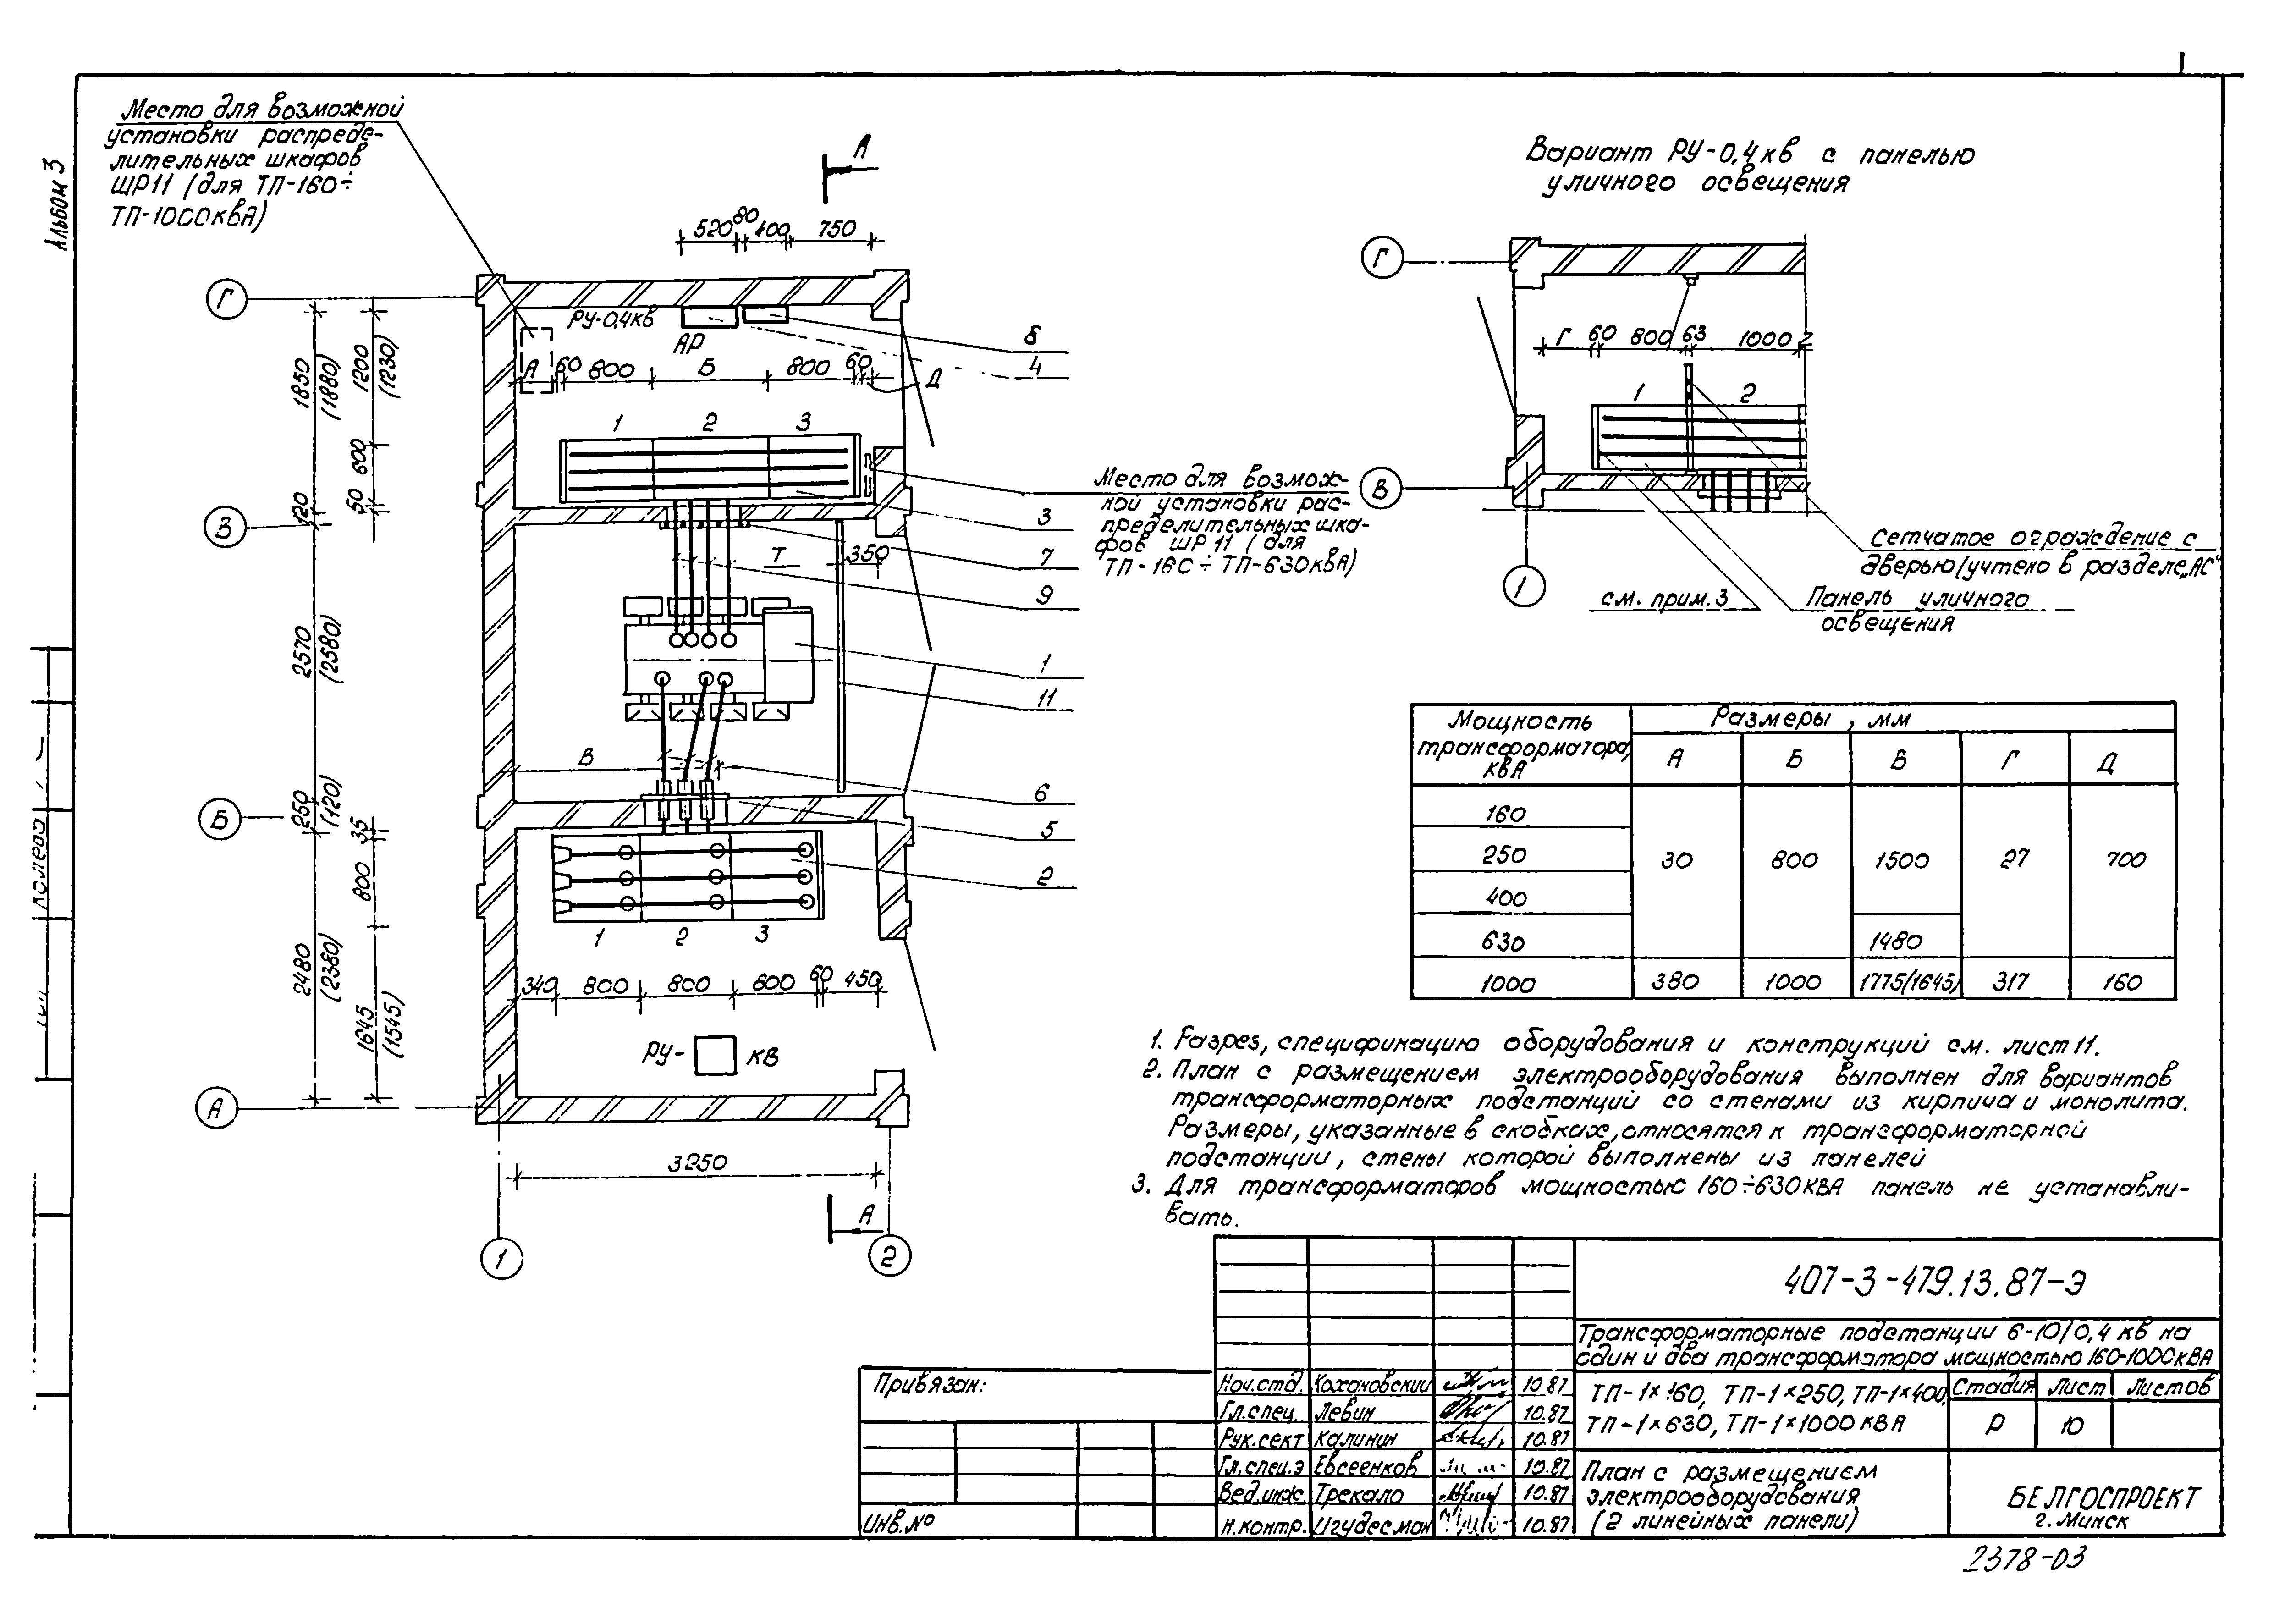 Альбом 3
Место для возможной
установки распреде-
лительных шкафов
ШР11 (для ТП-160÷
ТП-1000кВА)
А
520 80 400 750
Г
РУ-0,4кВ
АР
А 60 800 Б 800 60
Д
8
4
1850
(1880)
1200
(1230)
600
50
120
1 2 3
В
Место для возмож-
ной установки рас-
пределительных шка-
фов ШР11 (для
ТП-160÷ТП-630кВА)
3
7
9
Т
350
2570
(2580)
1
11
В
6
5
2
Б
250
(120)
35
800
1 2 3
2480
(2380)
1645
(1545)
340 800 800 800 60 450
РУ- кВ
А
3250
А
1
2
Вариант РУ-0,4кВ с панелью
уличного освещения
Г
Г 60 800 63 1000
1 2
В
1
Сетчатое ограждение с
дверью (учтено в разделе „АС"
см. прим. 3
Панель уличного
освещения
Мощность
трансформатора,
кВА
Размеры, мм
А Б В Г Д
160
250 30 800 1500 27 700
400
630 1480
1000 380 1000 1775(1645) 317 160
1. Разрез, спецификацию оборудования и конструкций см. лист 11.
2. План с размещением электрооборудования выполнен для вариантов
трансформаторных подстанций со стенами из кирпича и монолита.
Размеры, указанные в скобках, относятся к трансформаторной
подстанции, стены которой выполнены из панелей
3. Для трансформаторов мощностью 160÷630кВА панель не устанавли-
вать.
407-3-479.13.87-Э
Трансформаторные подстанции 6-10/0,4 кВ на
один и два трансформатора мощностью 160-1000кВА
Привязан:
Инв.№
Нач.отд. Кохановский 10.87
Гл.спец. Левин 10.87
Рук.сект Калинин 10.87
Гл.спец.э Евсеенков 10.87
Вед.инж. Трекало 10.87
Н.контр. Игудесман 10.87
ТП-1×160, ТП-1×250, ТП-1×400,
ТП-1×630, ТП-1×1000 кВА
Стадия Лист Листов
Р 10
План с размещением
электрооборудования
(2 линейных панели)
БЕЛГОСПРОЕКТ
г. Минск
2378-03